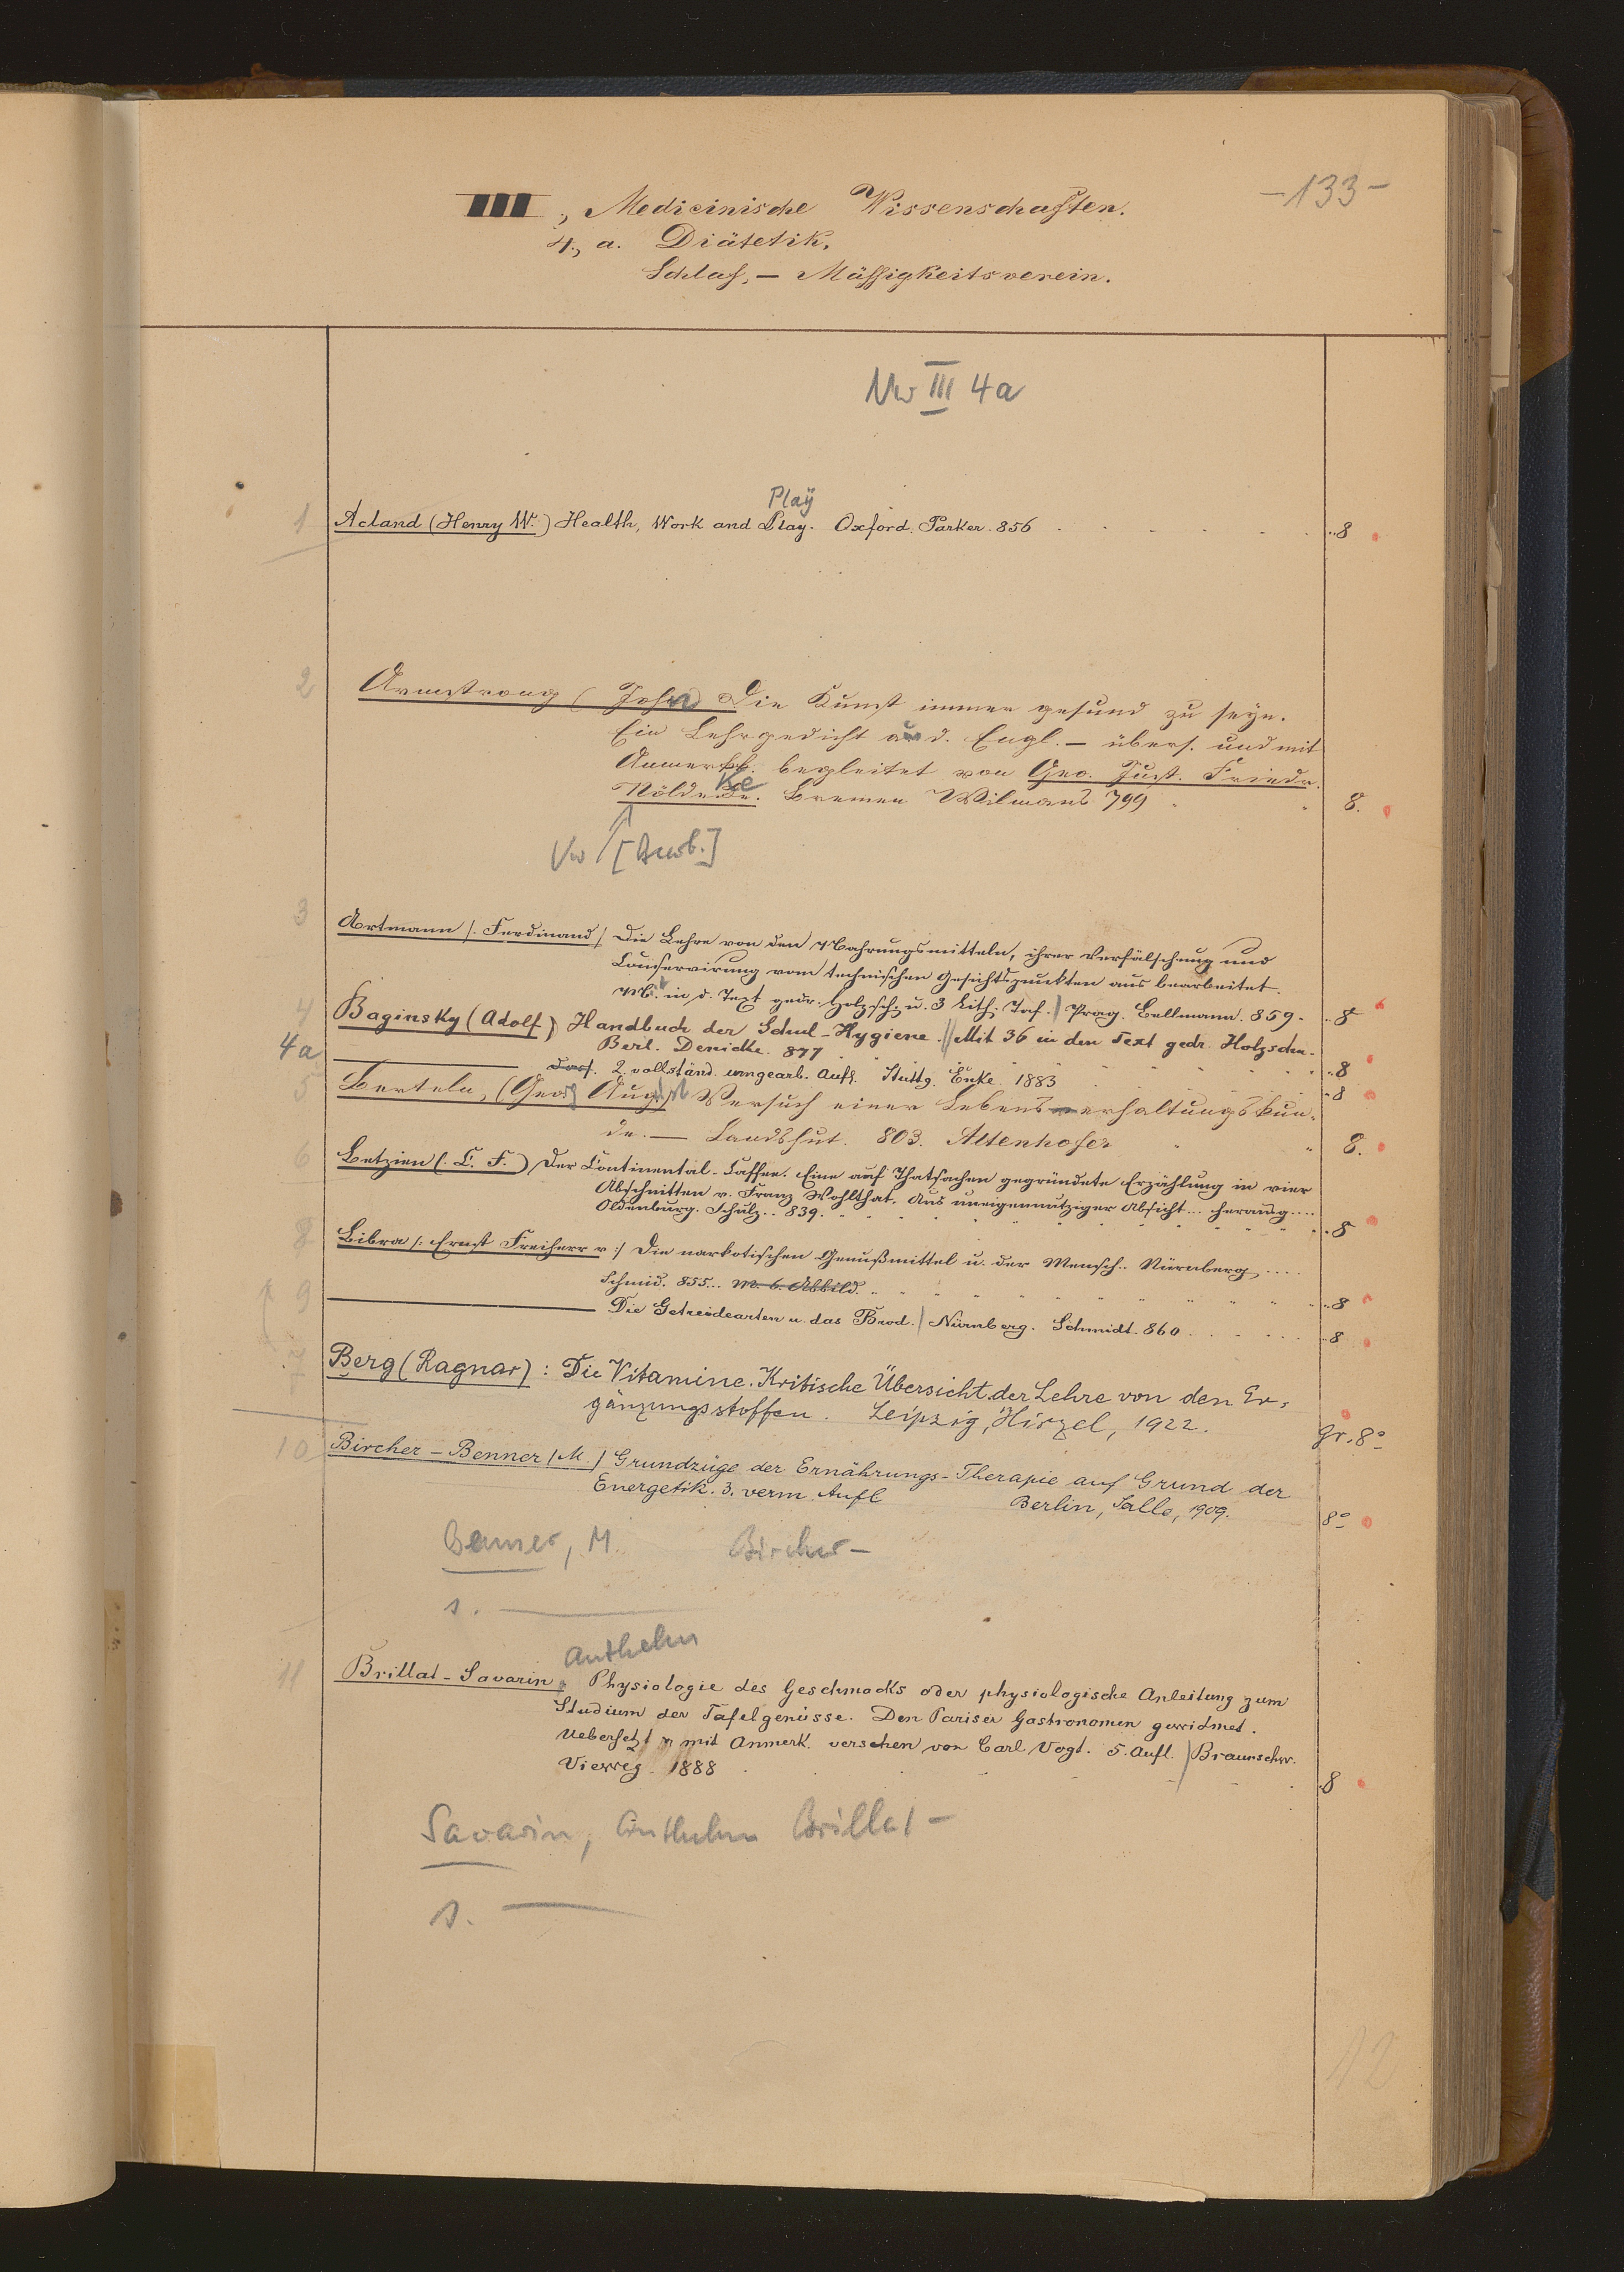 -133-
III, Medicinische Wissenschaften.
4, a. Diätetik,
Schlaf, — Mässigkeitsverein.
Nw III 4a
Play
1 Acland (Henry W.) Health, Work and Play. Oxford. Parker. 856 . . . . . 8
2 Armstrong (John) Die Kunst immer gesund zu seyn.
Ein Lehrgedicht a. d. Engl. — übers. und mit
Anmerkk. begleitet von Geo. Just. Friedr.
Nöldeke. Bremen Wilmans 799 8.
Vw [Bearb.]
3 Artmann /: Ferdinand / Die Lehre von den Nahrungsmitteln, ihrer Verfälschung und
Conservirung vom technischen Gesichtspunkten aus bearbeitet.
M. in d. Text gedr. Holzsch. u. 3 lith. Taf. / Prag. Bellmann. 859. 8
4 Baginsky (Adolf) Handbuch der Schul-Hygiene. // Mit 36 in den Text gedr. Holzschn.
Berl. Denicke. 877 8
4a —— dass. 2. vollständ. umgearb. Aufl. Stuttg. Enke. 1883 8
5 Berteln, (Georg August) Versuch einer Lebenserhaltungskun-
de. — Landshut. 803. Attenhofer 8.
6 Betzien (: C. F.) Der Continental-Caffee. Eine auf Thatsachen gegründete Erzählung in vier
Abschnitten v. Franz Wohlthat. Aus uneigennütziger Absicht... herausg....
Oldenburg. Schulz.. 839. 8
8 Bibra /: Ernst Freiherr v :/ Die narkotischen Genußmittel u. der Mensch.. Nürnberg ....
Schmid. 855... M. 6. Abbild. 8
9 —— Die Getreidearten u. das Brod. / Nürnberg. Schmidt. 860. 8
7 Berg (Ragnar): Die Vitamine. Kritische Übersicht der Lehre von den Er-
gänzungsstoffen. Leipzig, Hirzel, 1922. gr. 8°
10 Bircher-Benner (M.) Grundzüge der Ernährungs-Therapie auf Grund der
Energetik. 3. verm. Aufl Berlin, Salle, 1909. 8°
Benner, M. Bircher-
s. ——
Anthelm
11 Brillat-Savarin, Physiologie des Geschmacks oder physiologische Anleitung zum
Studium der Tafelgenüsse. Den Pariser Gastronomen gewidmet.
Uebersetzt u mit Anmerk. versehen von Carl Vogt. 5. Aufl. / Braunschw.
Vieweg. 1888 8
Savarin, Anthelm Brillat-
s. ——
12